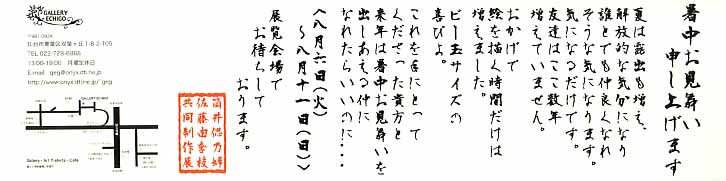 暑中お見舞い
申し上げます
夏は露出も増え、
解放的な気分になり
誰とでも仲良くなれ
そうな気になります。
気になるだけです。
友達はここ数年
増えていません。
おかげで
絵を描く時間だけは
増えました。
ビー玉サイズの
喜びよ。
これを手にとって
くださった貴方と
来年は暑中お見舞いを
出しあえる仲に
なれたらいいのに・・・
〈八月六日(火)
〜八月十一日(日)〉
展覧会場で
お待ちして
おります。
筒井偲乃婦
佐藤由季枝
共同制作展
GALLERY
ECHIGO
仙台市青葉区双葉ヶ丘1-8-2-105
TEL 022-728-6988
13:00-19:00 月曜定休日
E-mail geg@onyx.dti.ne.jp
GALLERY ECHIGO
Gallery・Art T-shirts・Cafe